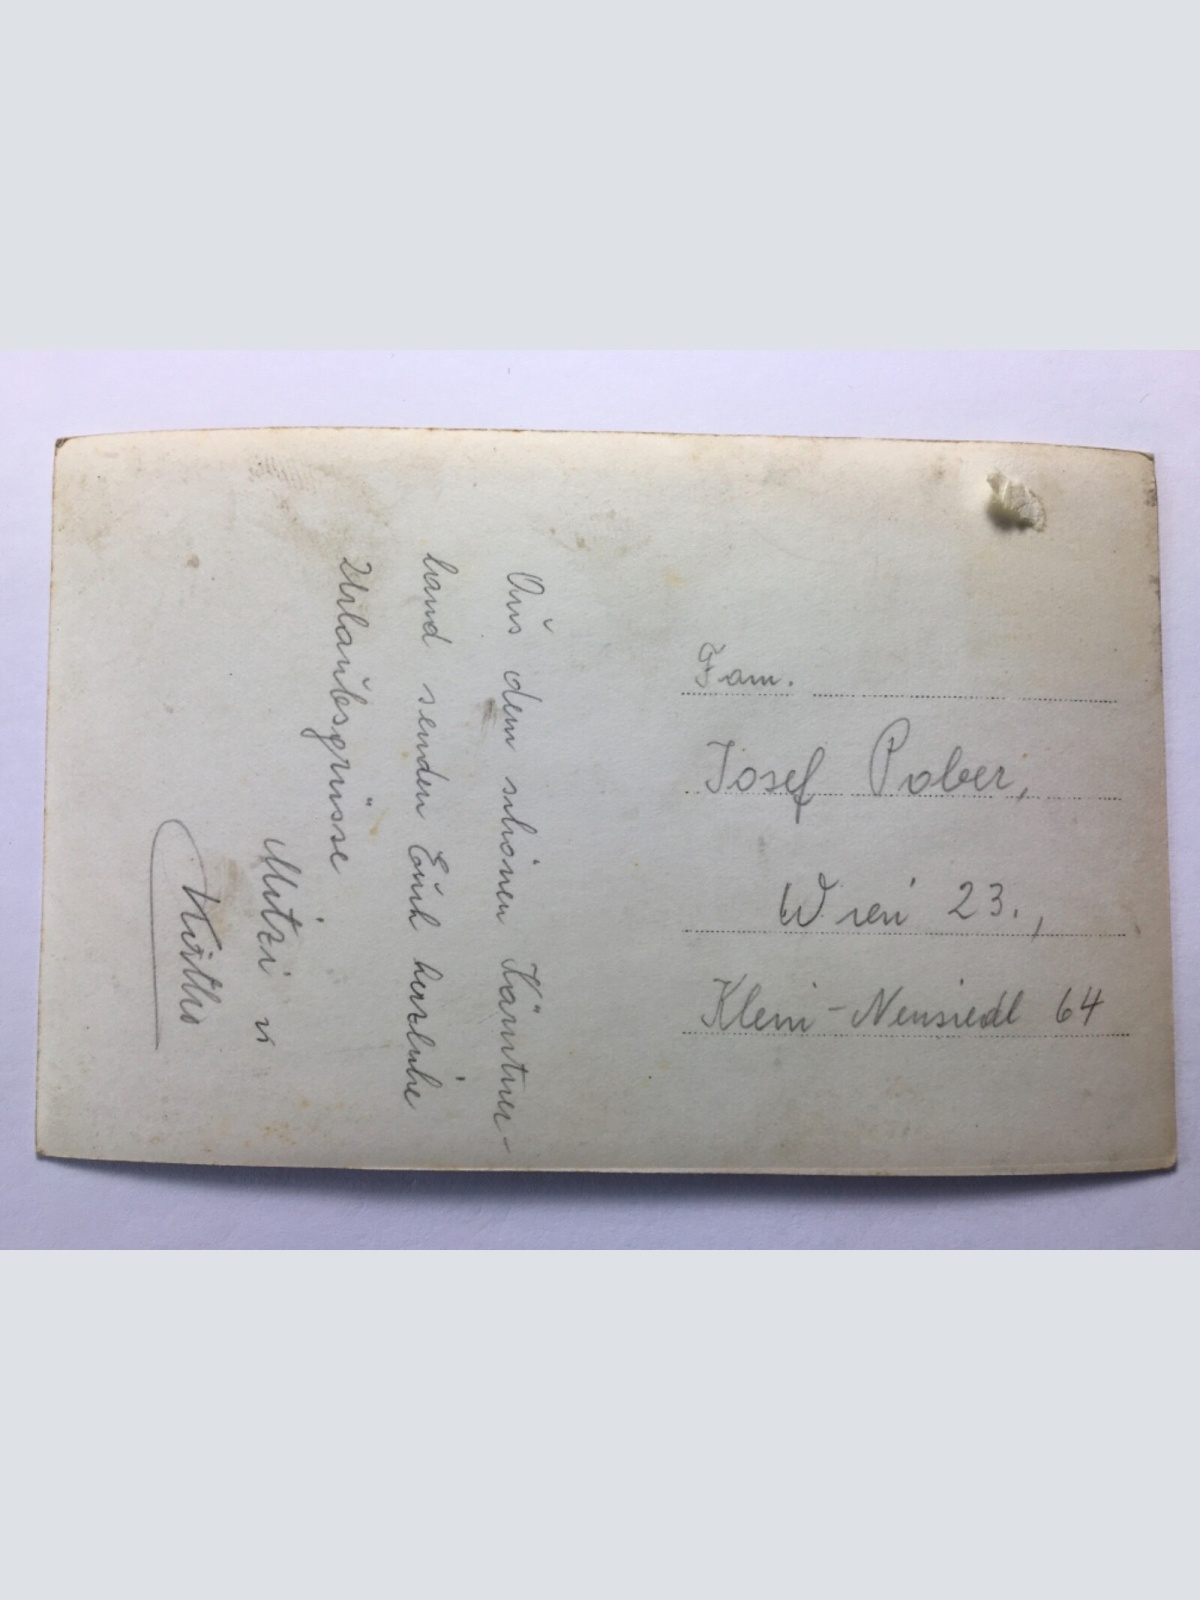 Aus dem schönen Kärntner-
land senden Euch herzliche
Urlaubsgrüsse
Mitzi u
Fam.
Josef Pober,
Wien 23.,
Klein-Neusiedl 64